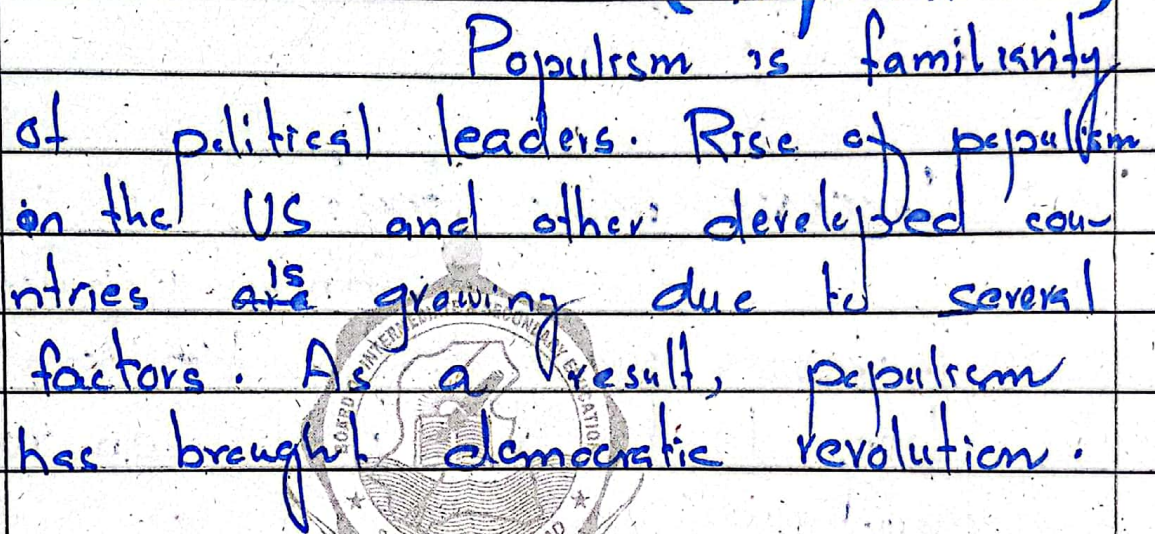 Populism is familiarity
of political leaders. Rise of populism
in the US and other developed cou-
ntries are is growing due to several
factors. As a result, populism
has brought democratic revolution.
BOARD INTERMEDIATE SECONDARY EDUCATION